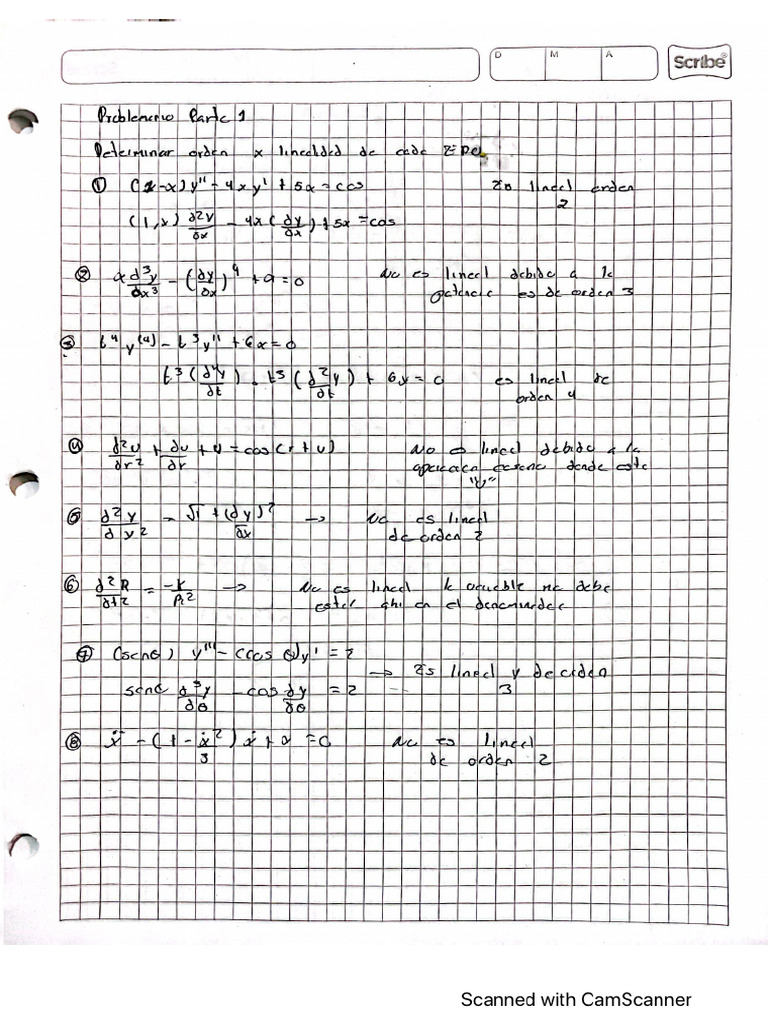 D M A Scribe®
Problemario Parte 1
Determinar orden x linealdad de cada EDO
① (1-x)y'' - 4xy' + 5x = cos Es lineal orden
2
(1,x) d²y/dx - 4x(dy/dx) + 5x = cos
② x d³y/dx³ - (dy/dx)⁴ + y = 0 No es lineal debido a la
potencia es de orden 3
③ t⁴ y⁽⁴⁾ - t³y'' + 6x = 0
t³(d⁴y/dt) - t³(d²y/dt) + 6y = 0 es lineal de
orden 4
④ d²u/dr² + du/dr + u = cos(r+u) No es lineal debido a la
donde este
"u"
⑤ d²y/dx² = √1+(dy/dx)² → No es lineal
de orden 2
⑥ d²R/dt² = -k/R² → No es lineal k variable no debe
estar ahi en el denominador
⑦ (senθ) y''' - (cos θ)y' = 2
→ Es lineal y de orden
3
senθ d³y/dθ - cos dy/dθ = 2
⑧ ẍ - (1 - ẋ²/3) ẋ + x = 0 No es lineal
de orden 2
Scanned with CamScanner